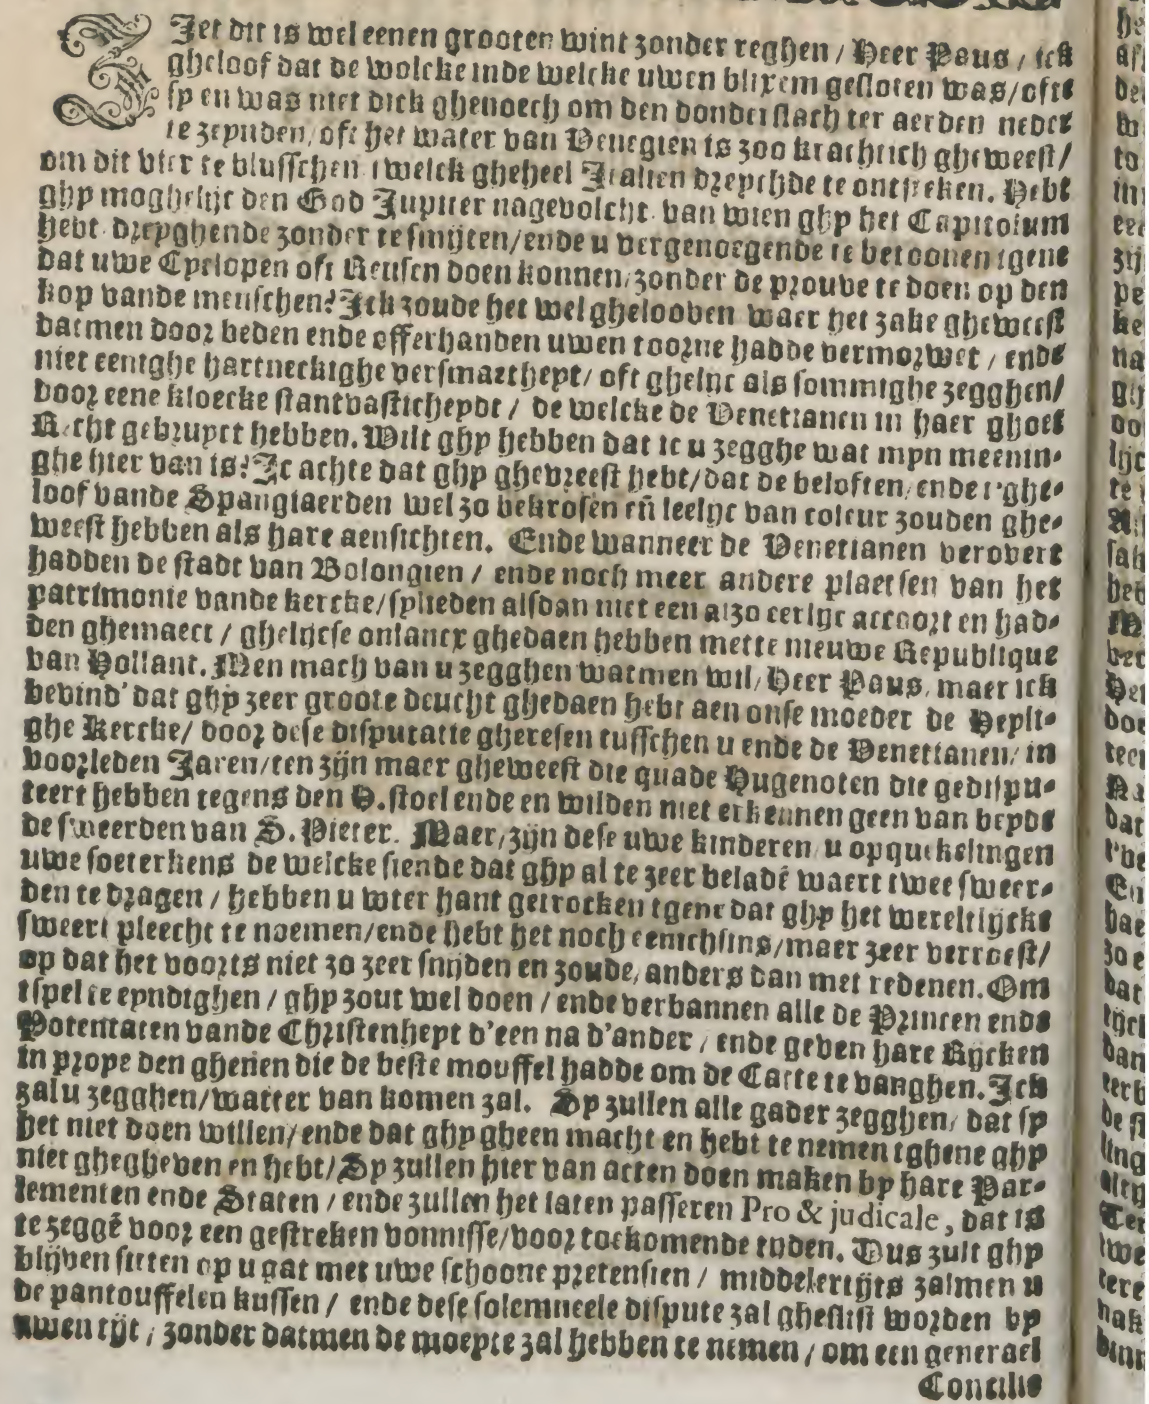 Ziet dit is wel eenen grooten wint zonder reghen / Heer Paus / ick
gheloof dat de wolcke inde welcke uwen blixem gesloten was / ofte
sy en was niet dick ghenoech om den donderslach ter aerden neder
te zeynden, oft het water van Venegien is zoo krachtich gheweest /
om dit vier te blusschen twelck gheheel Italien dreychde te ontsteken. Hebt
ghy moghelijc den God Jupiter nagevolcht van wien ghy het Capitolium
hebt dreyghende zonder te smijten / ende u vergenoegende te betoonen tgene
dat uwe Cyclopen oft Reusen doen konnen, zonder de prouve te doen op den
kop vande menschen? Ick zoude het wel ghelooven waer het zake gheweest
datmen door beden ende offerhanden uwen toorne hadde vermorwet / ende
niet eenighe hartneckighe versmaetheyt / oft ghelijc als sommighe zegghen /
door eene kloecke stantvasticheydt / de welcke de Venetianen in haer ghoet
Recht gebruyct hebben. Wilt ghy hebben dat ic u zegghe wat mijn meenin-
ghe hier van is? Ic achte dat ghy ghevreest hebt / dat de beloften, ende t'ghe-
loof vande Spangiaerden wel zo bekrosen eñ leelijc van coleur zouden ghe-
weest hebben als hare aensichten. Ende wanneer de Venetianen verovert
hadden de stadt van Bolongien / ende noch meer andere plaetsen van het
patrimonie vande kercke / splieden alsdan niet een alzo eerlijc accoort en had-
den ghemaect / ghelijcse onlancx ghedaen hebben mette nieuwe Republique
van Hollant. Men mach van u zegghen watmen wil, Heer Paus, maer ick
bevind' dat ghy zeer groote deucht ghedaen hebt aen onse moeder de Heyli-
ghe Kercke / door dese disputatie gheresen tusschen u ende de Venetianen, in
voorleden Jaren / ten zijn maer gheweest die quade Hugenoten die gedispu-
teert hebben tegens den H. stoel ende en wilden niet erkennen geen van beyde
de sweerden van S. Pieter. Maer, zijn dese uwe kinderen u opquikelingen
uwe soeterkens de welcke siende dat ghy al te zeer beladē waert twee sweer-
den te dragen / hebben u wter hant getrocken tgene dat ghy het wereltlijcke
sweert pleecht te noemen / ende hebt het noch eenichsins / maer zeer verroest /
op dat het voorts niet zo zeer snijden en zoude, anders dan met redenen. Om
tspel te eyndighen / ghy zout wel doen / ende verbannen alle de Princen ende
Potentaten vande Christenheyt d'een na d'ander / ende geven hare Rijcken
in proye den ghenen die de beste mouffel hadde om de Catte te vanghen. Ick
zal u zegghen / watter van komen zal. Sy zullen alle gader zegghen, dat sy
het niet doen willen / ende dat ghy gheen macht en hebt te nemen tghene ghy
niet ghegheven en hebt / Sy zullen hier van acten doen maken by hare Par-
lementen ende Staten / ende zullen het laten passeren Pro & judicale, dat is
te zeggē voor een gestreken vonnisse / voor toekomende tijden. Dus zult ghy
blijven sitten op u gat met uwe schoone pretensien / middelertijts zalmen u
de pantouffelen kussen / ende dese solemneele dispute zal gheslist worden by
uwen tijt, zonder datmen de moeyte zal hebben te nemen / om een generael
Concilie